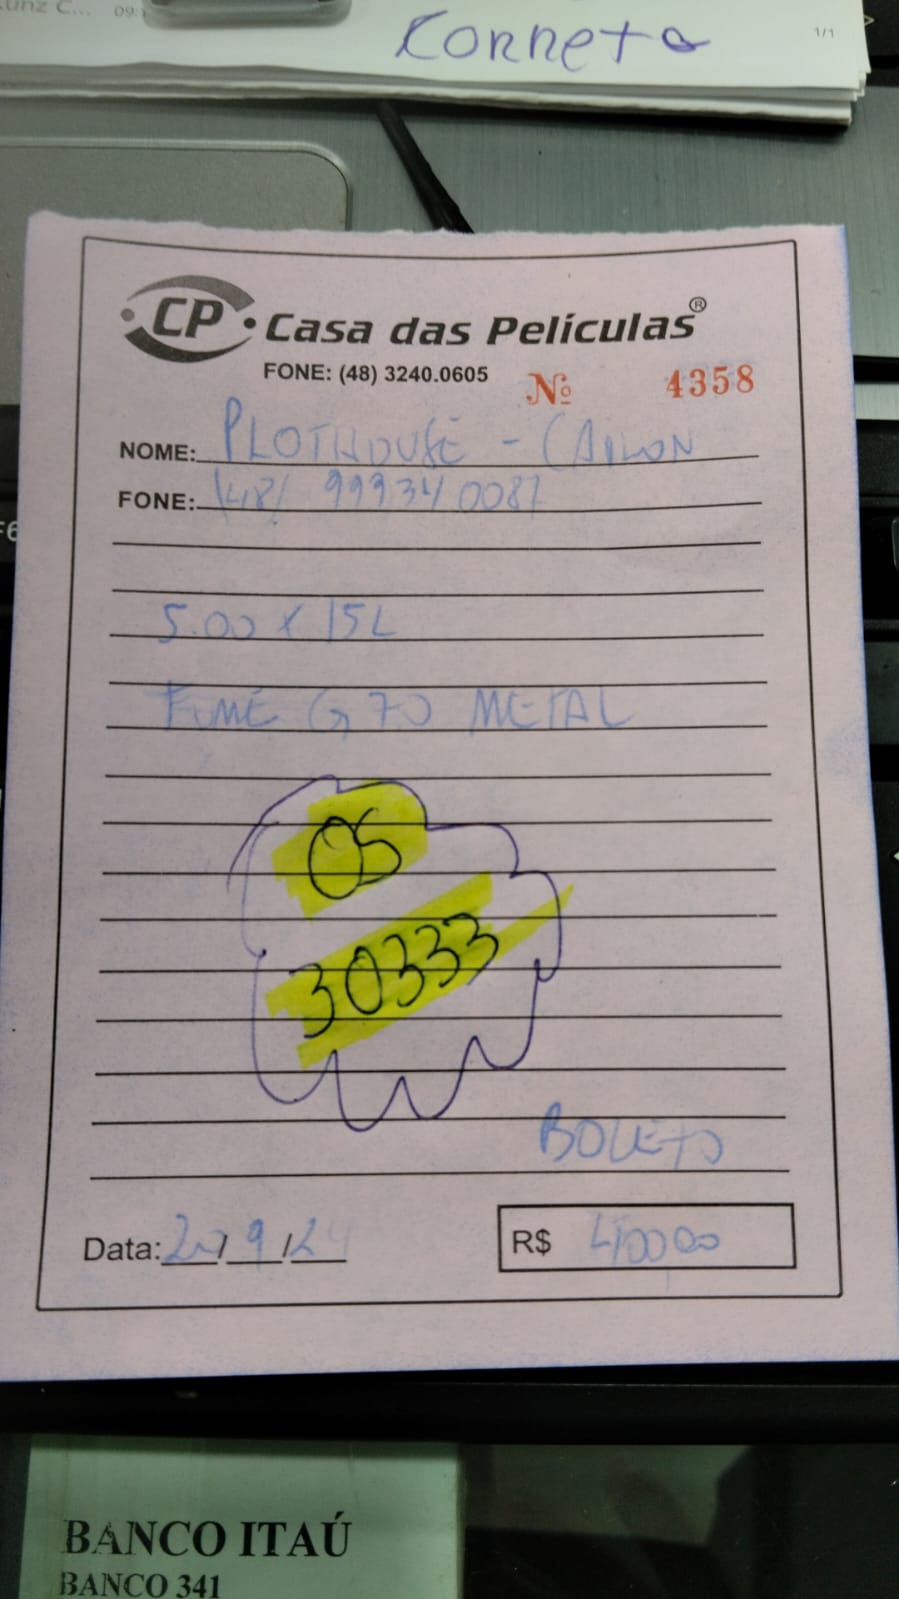 09:
Korneta
1/1
CP Casa das Películas®
FONE: (48) 3240.0605 Nº 4358
NOME: PLOTHOUSE - CAILON
FONE: (48) 999340087
5.00 X 15L
FUMÊ G70 METAL
OS
30333
BOLETO
Data: 20/9/24 R$ 410000
BANCO ITAÚ
BANCO 341